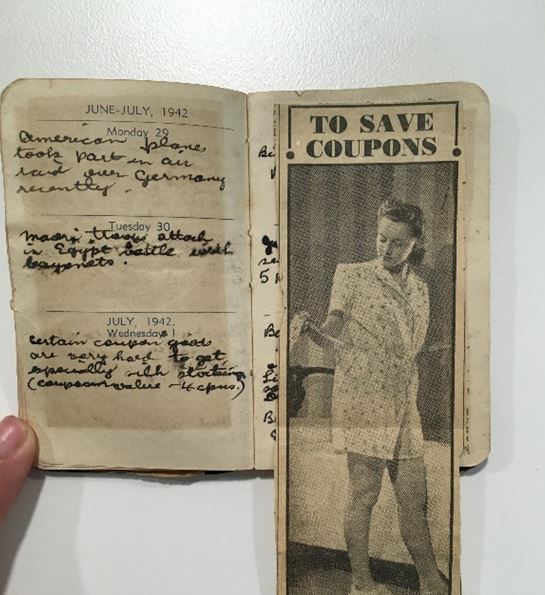 JUNE-JULY, 1942
Monday 29
American planes
took part in air
raid over Germany
recently.
Tuesday 30
Maori troops attack
in Egypt battle with
bayonets.
JULY, 1942.
Wednesday 1
Certain coupon goods
are very hard to get,
especially silk stockings
(coupon value - 4 cpns.)
TO SAVE
COUPONS